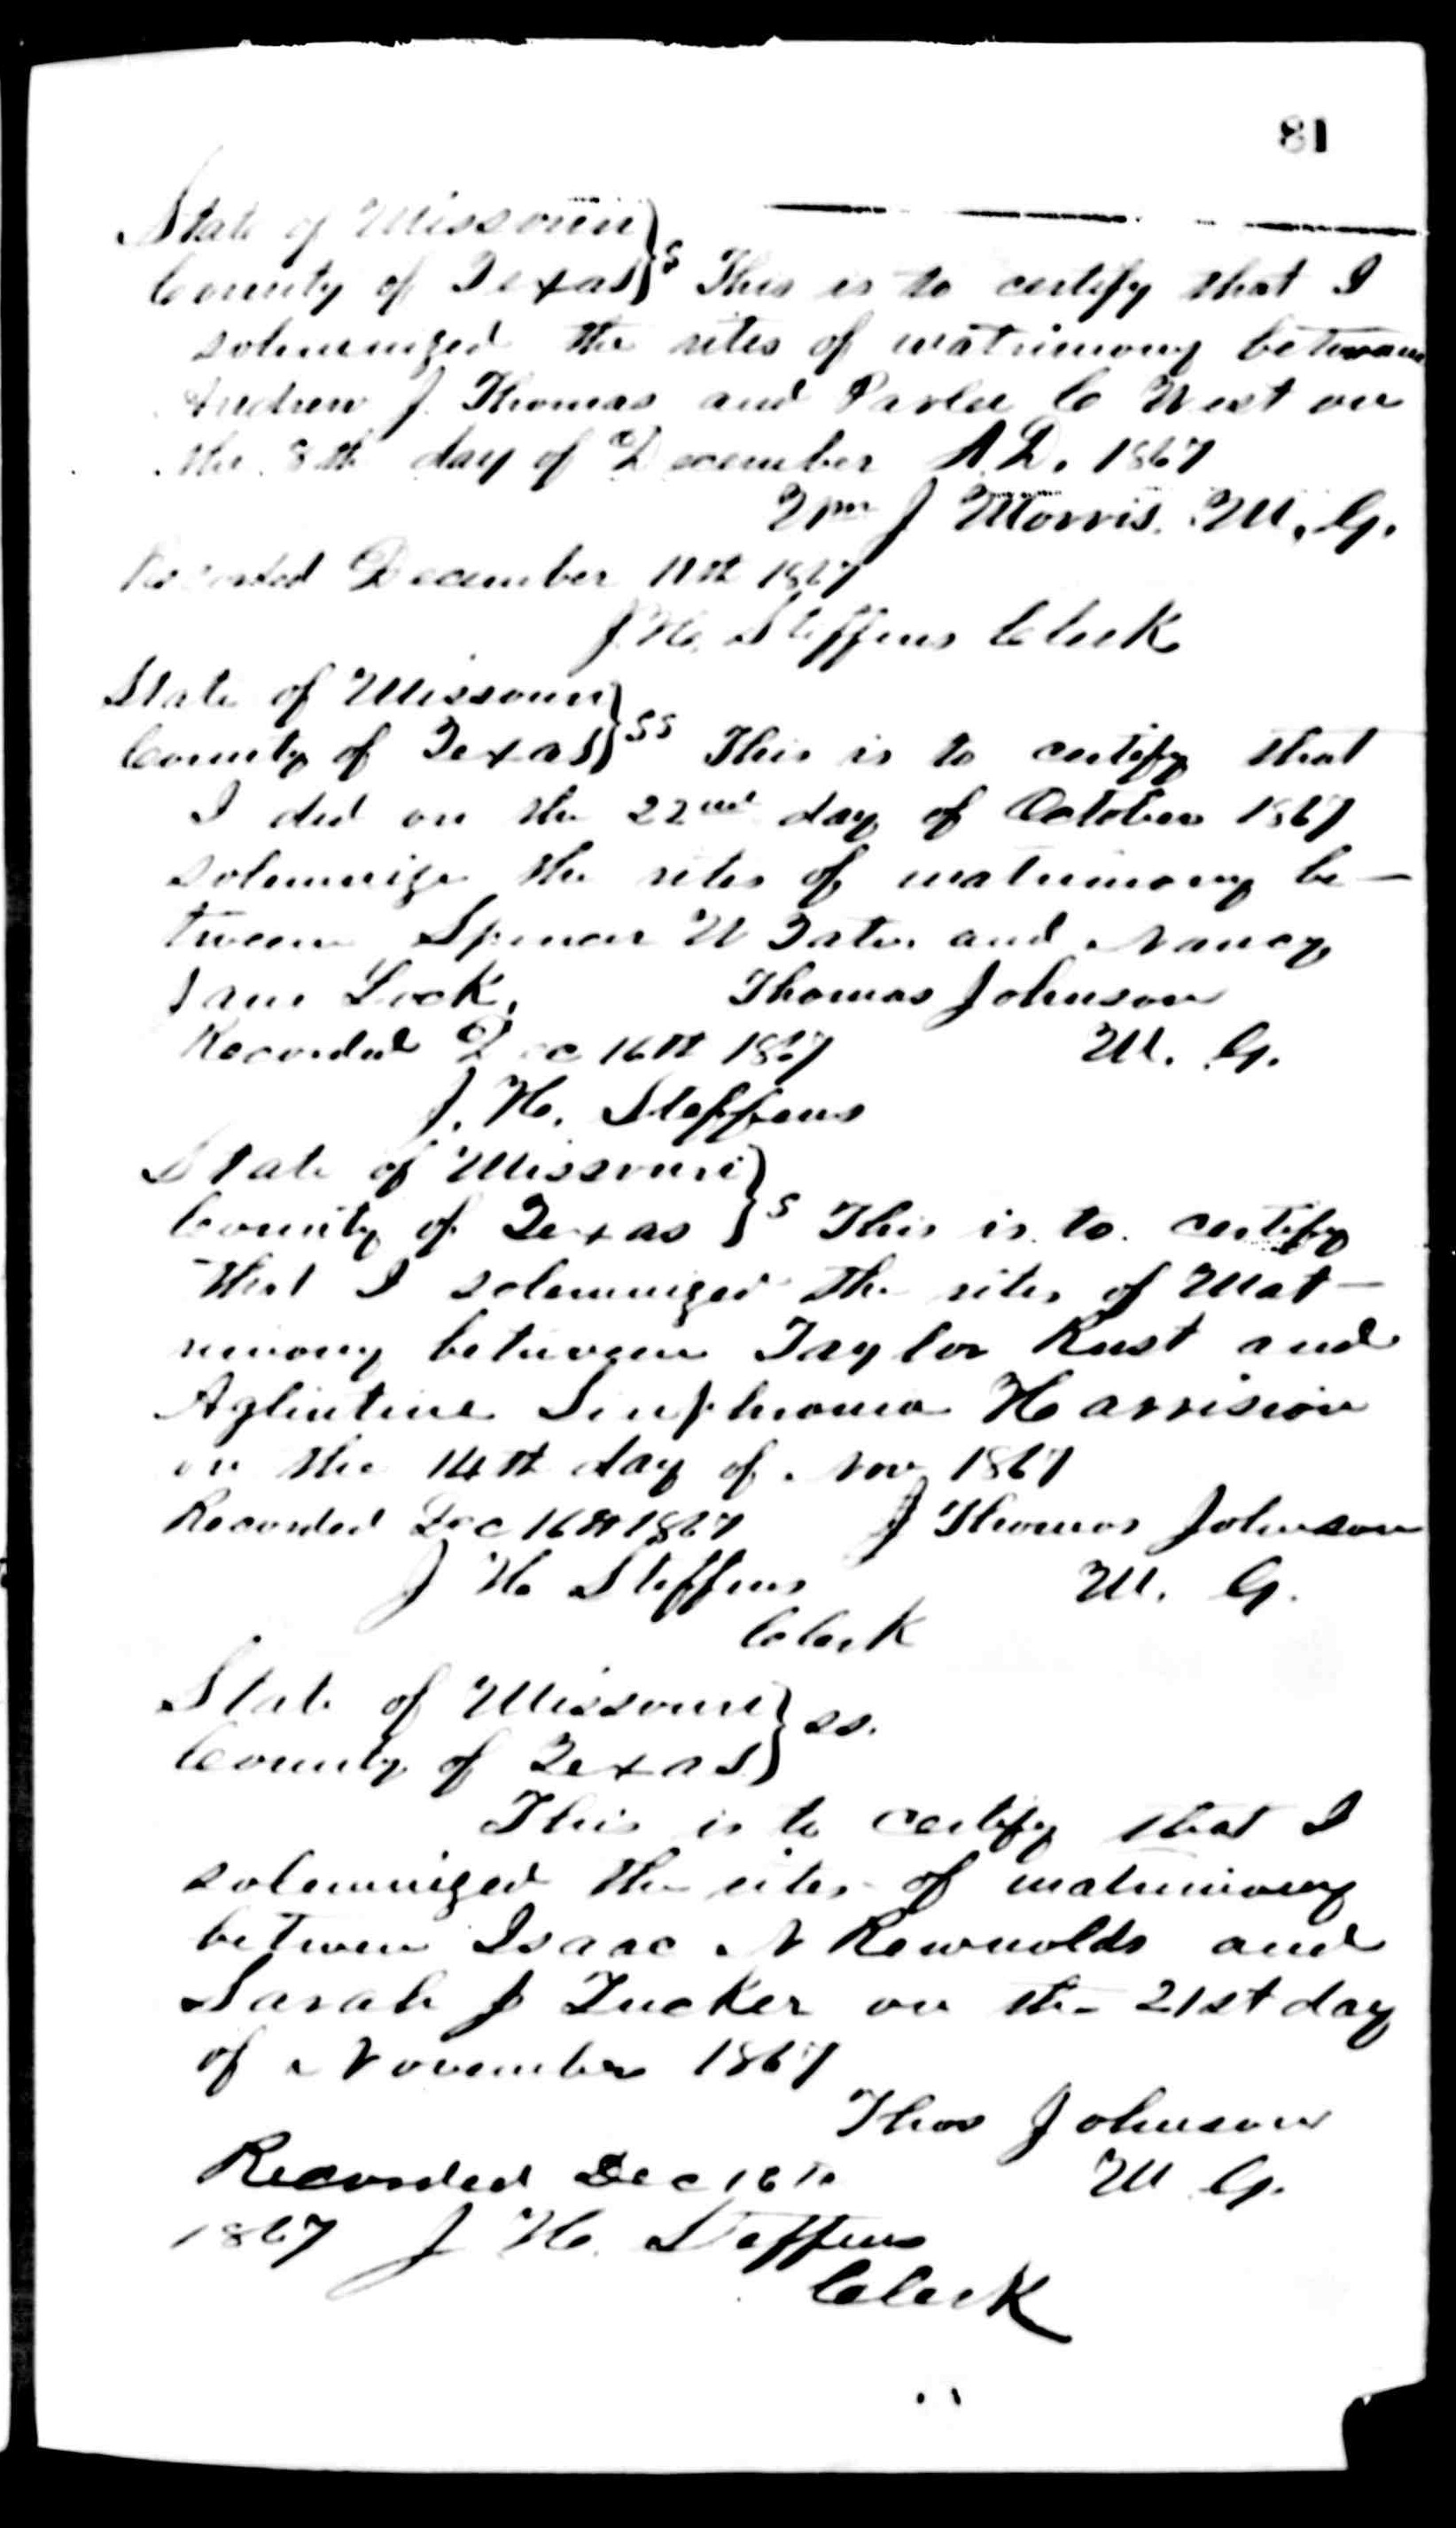 81
State of Missouri }
County of Texas } S This is to certify that I
solemnized the rites of matrimony between
Andrew J. Thomas and Parlee C West on
the 8th day of December A.D. 1867
Wm J Morris. M. G.
Recorded December 11th 1867
J. H. Steffens Clerk
State of Missouri }
County of Texas } SS This is to certify that
I did on the 22nd day of October 1867
solemnize the rites of matrimony be-
tween Spencer W and Nancy
Jane Lock. Thomas Johnson
Recorded Dec 16th 1867 M. G.
J. H. Steffens
State of Missouri }
County of Texas } S This is to certify
that I solemnized the rites of Mat-
rimony between Taylor Rust and
Aglintine Harrision
on the 14th day of Nov 1867
Recorded Dec 16th 1867 J Thomas Johnson
J H Steffens M. G.
Clerk
State of Missouri }
County of Texas } ss.
This is to certify that I
solemnized the rites of matrimony
between Isaac N Rewnolds and
Sarah J Tucker on the 21st day
of November 1867
Thos Johnson
Recorded Dec 16th M G.
1867 J H. Steffens
Clerk